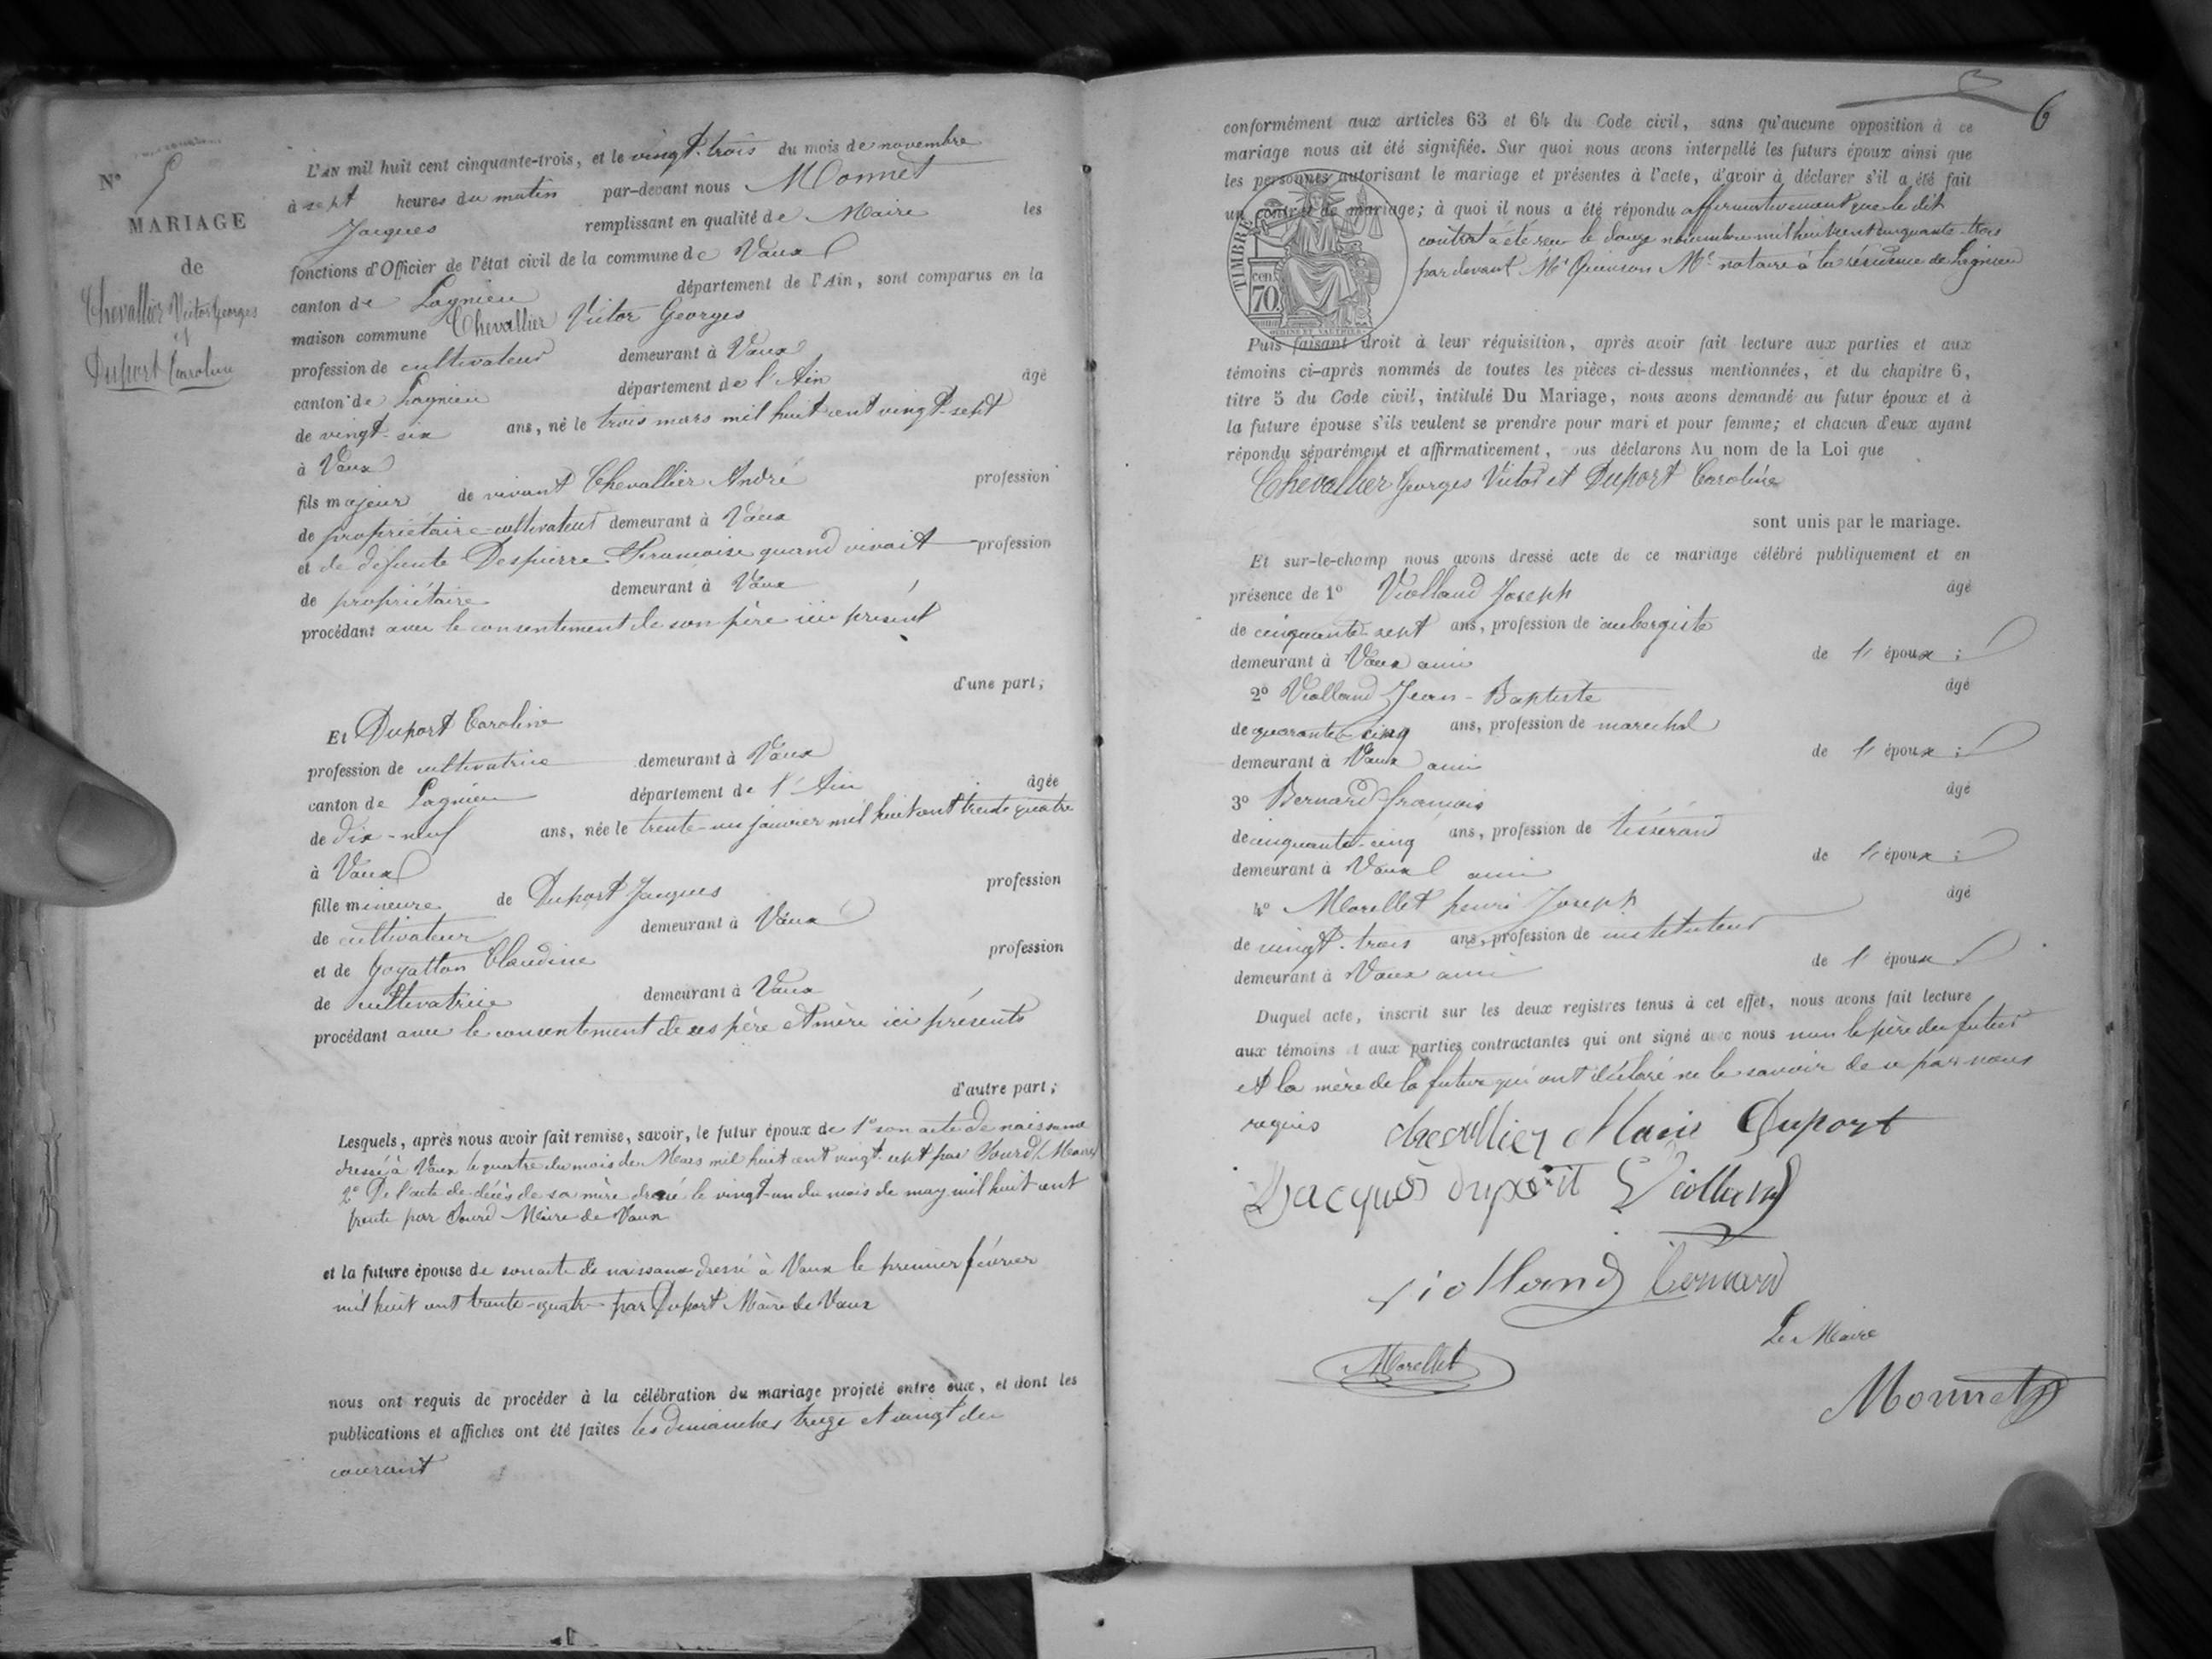 N° 5
MARIAGE
de
Chevallier Victor Georges
et
Duport Caroline
L'AN mil huit cent cinquante-trois, et le vingt-trois du mois de novembre
à sept heures du matin par-devant nous Monnet
Jacques remplissant en qualité de Maire les
fonctions d'Officier de l'état civil de la commune de Vaux
canton de Lagnieu département de l'Ain, sont comparus en la
maison commune Chevallier Victor Georges
profession de cultivateur demeurant à Vaux
canton de Lagnieu département de l'Ain âgé
de vingt-six ans, né le trois mars mil huit cent vingt-sept
à Vaux
fils majeur de vivant Chevallier André profession
de propriétaire-cultivateur demeurant à Vaux
et de défunte Despierre Francoise quand vivait profession
de propriétaire demeurant à Vaux
procédant avec le consentement de son père ici présent
d'une part;
Et Duport Caroline
profession de cultivatrice demeurant à Vaux
canton de Lagnieu département de l'Ain âgée
de dix-neuf ans, née le trente-un janvier mil huit cent trente quatre
à Vaux
fille mineure de Duport Jacques profession
de cultivateur demeurant à Vaux
et de Goyatton Claudine profession
de cultivatrice demeurant à Vaux
procédant avec le consentement de ses père et mère ici présents
d'autre part;
Lesquels, après nous avoir fait remise, savoir, le futur époux de 1° son acte de naissance
dressé à Vaux le quatre du mois de Mars mil huit cent vingt-sept par Sourd Maire
2° De l'acte de décès de sa mère dressé le vingt-un du mois de may mil huit cent
trente par Sourd Maire de Vaux
et la future épouse de son acte de naissance dressé à Vaux le premier février
mil huit cent trente-quatre par Duport Maire de Vaux
nous ont requis de procéder à la célébration du mariage projeté entre eux, et dont les
publications et affiches ont été faites les dimanches treize et vingt du
courant
6
conformément aux articles 63 et 64 du Code civil, sans qu'aucune opposition à ce
mariage nous ait été signifiée. Sur quoi nous avons interpellé les futurs époux ainsi que
les personnes autorisant le mariage et présentes à l'acte, d'avoir à déclarer s'il a été fait
un contrat de mariage; à quoi il nous a été répondu affirmativement que le dit
contrat a été reçu le douze novembre mil huit cent cinquante-trois
par devant Me Quinson Me notaire à la résidence de Lagnieu
TIMBRE
cen
70
Puis faisant droit à leur réquisition, après avoir fait lecture aux parties et aux
témoins ci-après nommés de toutes les pièces ci-dessus mentionnées, et du chapitre 6,
titre 5 du Code civil, intitulé Du Mariage, nous avons demandé au futur époux et à
la future épouse s'ils veulent se prendre pour mari et pour femme; et chacun d'eux ayant
répondu séparément et affirmativement, ous déclarons Au nom de la Loi que
Chevallier Georges Victor et Duport Caroline
sont unis par le mariage.
Et sur-le-champ nous avons dressé acte de ce mariage célébré publiquement et en
présence de 1° Violland Joseph âgé
de cinquante-sept ans, profession de aubergiste
demeurant à Vaux ami de l' époux;
2° Violland Jean-Baptiste âgé
de quarante-cinq ans, profession de marechal
demeurant à Vaux ami de l' époux;
3° Bernard françois âgé
de cinquante-cinq ans, profession de tisserand
demeurant à Vaux ami de l' époux;
4° Morellet henri Joseph âgé
de vingt-trois ans, profession de instituteur
demeurant à Vaux ami de l' époux
Duquel acte, inscrit sur les deux registres tenus à cet effet, nous avons fait lecture
aux témoins et aux parties contractantes qui ont signé avec nous non le père du futur
et la mère de la future qui ont déclaré ne le savoir de ce par nous
requis chevallier Marie Duport
Jacques duport Violland
violland Bernard
Le Maire
Morellet
Monnet